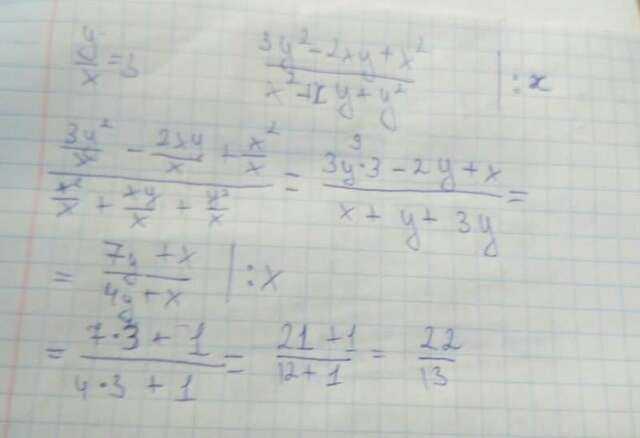 y/x = 3 (3y² - 2xy + x²)/(x² + xy + y²) | : x
(3y²/x - 2xy/x + x²/x)/(x²/x + xy/x + y²/x) = (3y·3 - 2y + x)/(x + y + 3y) =
= (7y + x)/(4y + x) | : x
= (7·3 + 1)/(4·3 + 1) = (21 + 1)/(12 + 1) = 22/13